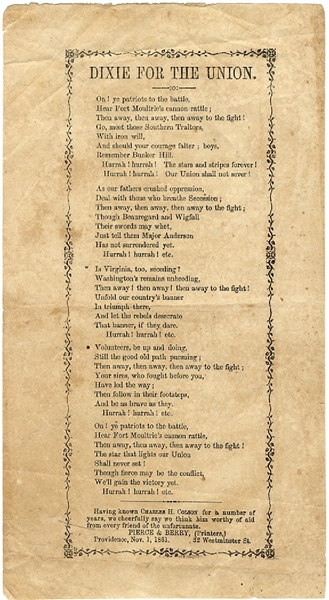 DIXIE FOR THE UNION.
On! ye patriots to the battle,
Hear Fort Moultrie's cannon rattle;
Then away, then away, then away to the fight!
Go, meet those Southern Traitors,
With iron will,
And should your courage falter; boys,
Remember Bunker Hill.
Hurrah! hurrah! The stars and stripes forever!
Hurrah! hurrah! Our Union shall not sever!
As our fathers crushed oppression,
Deal with those who breathe Secession;
Then away, then away, then away to the fight;
Though Beauregard and Wigfall
Their swords may whet,
Just tell them Major Anderson
Has not surrendered yet.
Hurrah! hurrah! etc.
Is Virginia, too, seceding?
Washington's remains unheeding,
Then away! then away! then away to the fight!
Unfold our country's banner
In triumph there,
And let the rebels desecrate
That banner, if they dare.
Hurrah! hurrah! etc.
Volunteers, be up and doing,
Still the good old path pursuing;
Then away, then away, then away to the fight;
Your sires, who fought before you,
Have led the way;
Then follow in their footsteps,
And be as brave as they.
Hurrah! hurrah! etc.
On! ye patriots to the battle,
Hear Fort Moultrie's cannon rattle,
Then away, then away, then away to the fight!
The star that lights our Union
Shall never set!
Though fierce may be the conflict,
We'll gain the victory yet.
Hurrah! hurrah! etc.
Having known CHARLES H. COLSON for a number of
years, we cheerfully say we think him worthy of aid
from every friend of the unfortunate.
PIERCE & BERRY, (Printers,)
Providence, Nov. 1, 1861. 32 Westminster St.